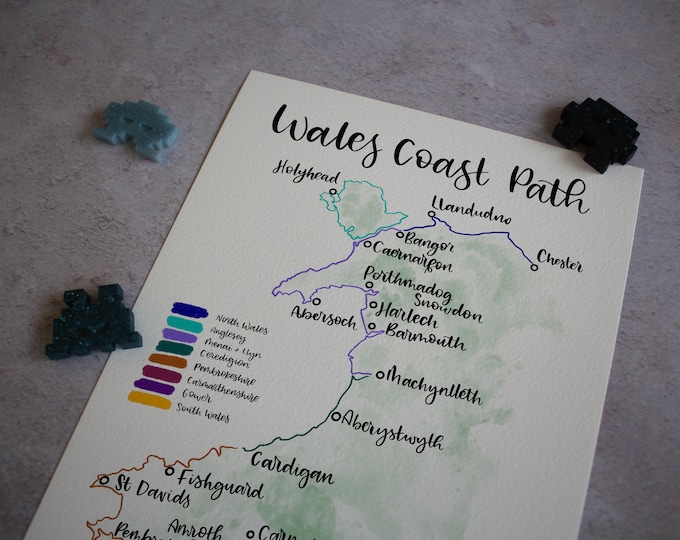 Wales Coast Path
Holyhead
Llandudno
Bangor
Caernarfon
Chester
Porthmadog
Snowdon
Abersoch
Harlech
Barmouth
Machynlleth
Aberystwyth
North Wales
Anglesey
Menai + Llyn
Ceredigion
Pembrokeshire
Carmarthenshire
Gower
South Wales
Cardigan
Fishguard
St Davids
Amroth